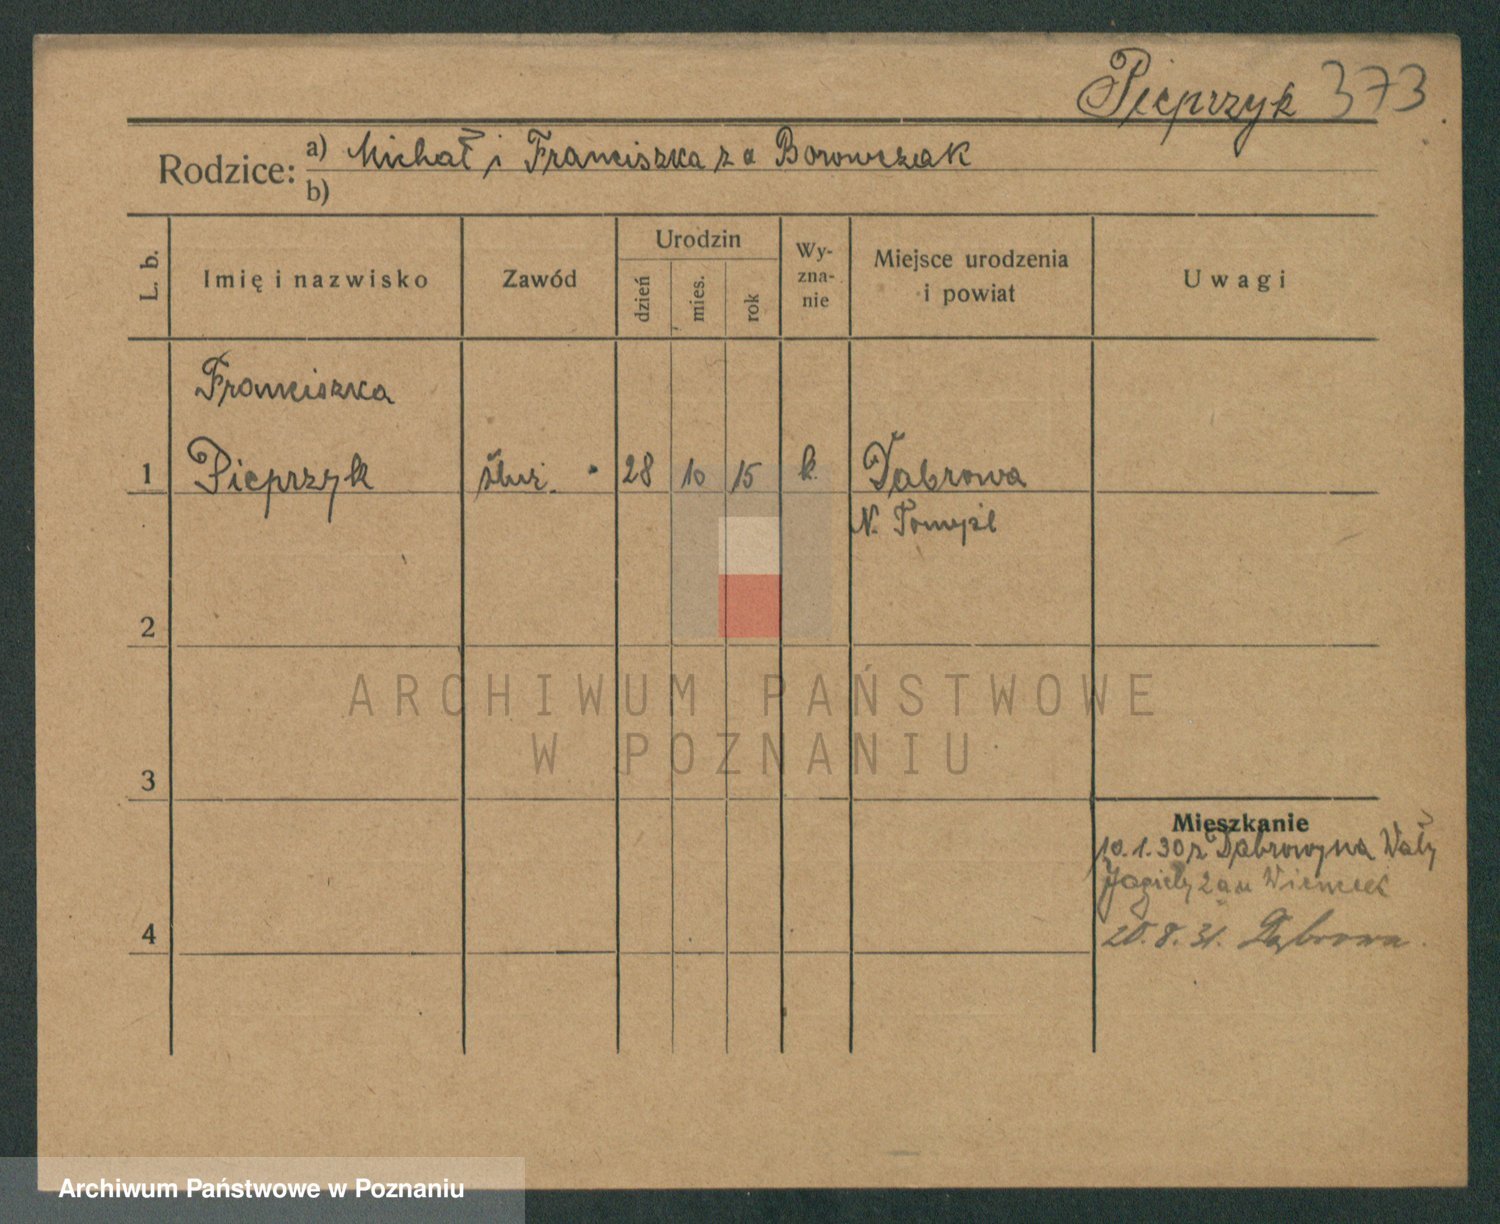 Pieprzyk 373
Rodzice: a) Michał i Franciszka z d Borowczak
b)
L. b. Imię i nazwisko Zawód Urodzin dzień mies. rok Wy-zna-nie Miejsce urodzenia i powiat Uwagi
Franciszka
1 Pieprzyk służ. 28 10 15 k. Dąbrowa
N. Tomyśl
2
ARCHIWUM PAŃSTWOWE
W POZNANIU
3
Mieszkanie
10.1.30 z Dąbrowy na Wały
Jagiełły 2a u
4
20.8.31. Dąbrowa.
Archiwum Państwowe w Poznaniu